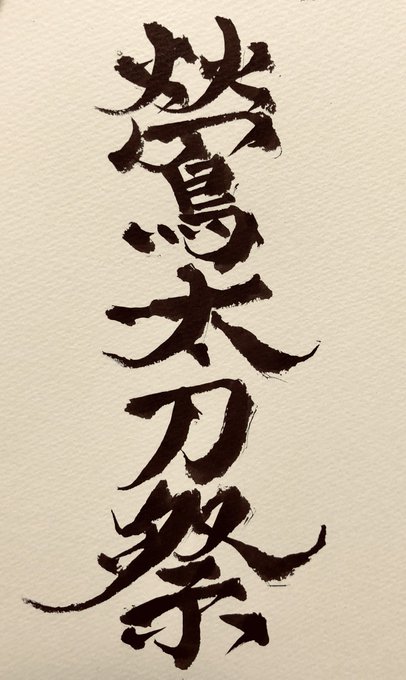 鶯太刀祭